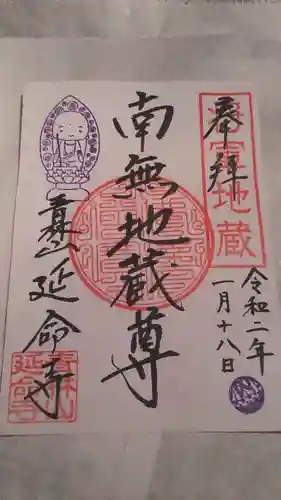 奉拝
海軍地蔵
令和二年
一月十八日
南無地蔵尊
延命寺
延命寺